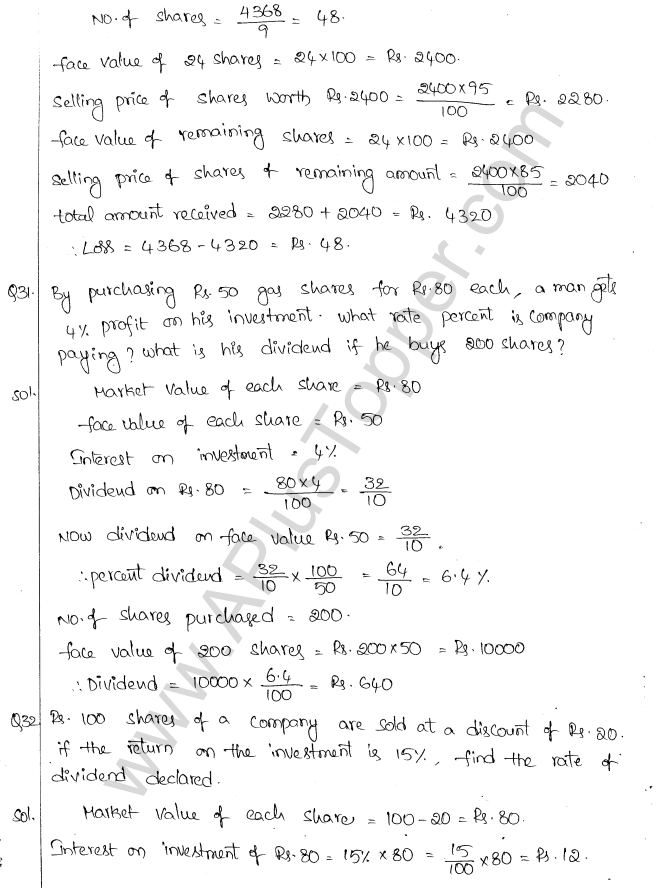 No. of shares = 4368/9 = 48.
face value of 24 shares = 24×100 = Rs. 2400.
Selling price of shares worth Rs. 2400 = 2400×95/100 = Rs. 2280.
face value of remaining shares = 24×100 = Rs. 2400
Selling price of shares of remaining amount = 2400×85/100 = 2040
total amount received = 2280 + 2040 = Rs. 4320
∴ Loss = 4368 - 4320 = Rs. 48.
Q31. By purchasing Rs. 50 gas shares for Rs. 80 each, a man gets
4% profit on his investment. what rate percent is company
paying? what is his dividend if he buys 200 shares?
Sol. Market value of each share = Rs. 80
face value of each share = Rs. 50
Interest on investment = 4%
Dividend on Rs. 80 = 80×4/100 = 32/10
Now dividend on face value Rs. 50 = 32/10.
∴ percent dividend = 32/10 × 100/50 = 64/10 = 6.4 %
No. of shares purchased = 200.
face value of 200 shares = Rs. 200×50 = Rs. 10000
∴ Dividend = 10000 × 6.4/100 = Rs. 640
Q32 Rs. 100 shares of a company are sold at a discount of Rs. 20.
if the return on the investment is 15%, find the rate of
dividend declared.
Sol. Market value of each share = 100-20 = Rs. 80.
Interest on investment of Rs. 80 = 15% × 80 = 15/100 × 80 = Rs. 12.
www.APlusTopper.com